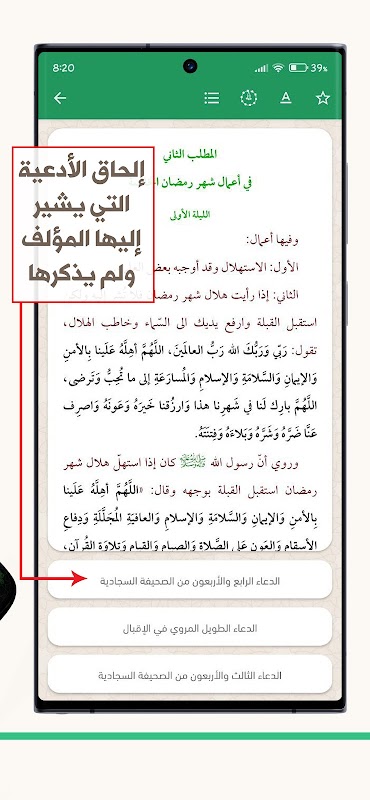 8:20
39%
إلحاق الأدعية
التي يشير
إليها المؤلف
ولم يذكرها
المطلب الثاني
في أعمال شهر رمضان
الليلة الأولى
وفيها أعمال:
الأول: الاستهلال وقد أوجبه بعض
الثاني: إذا رأيت هلال شهر رمضان
استقبل القبلة وارفع يديك الى السّماء وخاطب الهلال،
تقول: رَبّي وَرَبُّكَ الله رَبُّ العالَمينَ، اللَّهُمَّ أهِلَّهُ عَلَينا بِالأمنِ
وَالإيمانِ وَالسَّلامَةِ وَالإسلامِ وَالمُسارَعَةِ إلى ما تُحِبُّ وَتَرضى،
اللَّهُمَّ بارِك لَنا في شَهرِنا هذا وَارزُقنا خَيرَهُ وَعَونَهُ وَاصرِف
عَنَّا ضَرَّهُ وَشَرَّهُ وَبَلاءَهُ وَفِتنَتَهُ.
وروي أنّ رسول الله ﷺ كان إذا استهلّ هلال شهر
رمضان استقبل القبلة بوجهه وقال: «اللَّهُمَّ أهِلَّهُ عَلَينا
بِالأمنِ وَالإيمانِ وَالسَّلامَةِ وَالإسلامِ وَالعافيَةِ المُجَلَّلَةِ وَدِفاعِ
الأسقامِ وَالعَونِ عَلى الصَّلاةِ وَالصيامِ وَالقيامِ وَتِلاوَةِ القُرآنِ،
الدعاء الرابع والأربعون من الصحيفة السجادية
الدعاء الطويل المروي في الإقبال
الدعاء الثالث والأربعون من الصحيفة السجادية